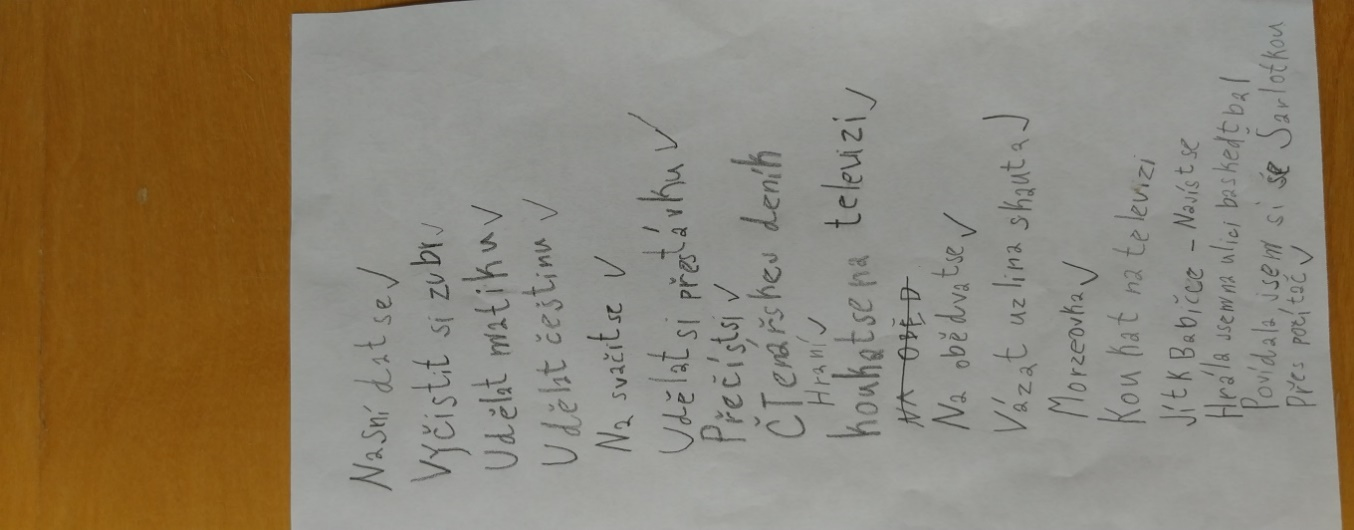 Nasní dat se ✓
Vyčistit si zuby ✓
Udělat matiku ✓
Udělat češtinu ✓
Na svačit se ✓
Udělat si přestávku ✓
Přečíst si ✓
ČTenářskev deník
Hraní ✓
koukat se na televizi ✓
NA OBĚD
Na obědvat se ✓
Vázat uzlina skauta ✓
Morzeovka ✓
Koukat na televizi
Jít k Babičce - Navíst se
Hrála jsem na ulici baskedťbal
Povídala jsem si se Šarlotkou
přes počítač ✓